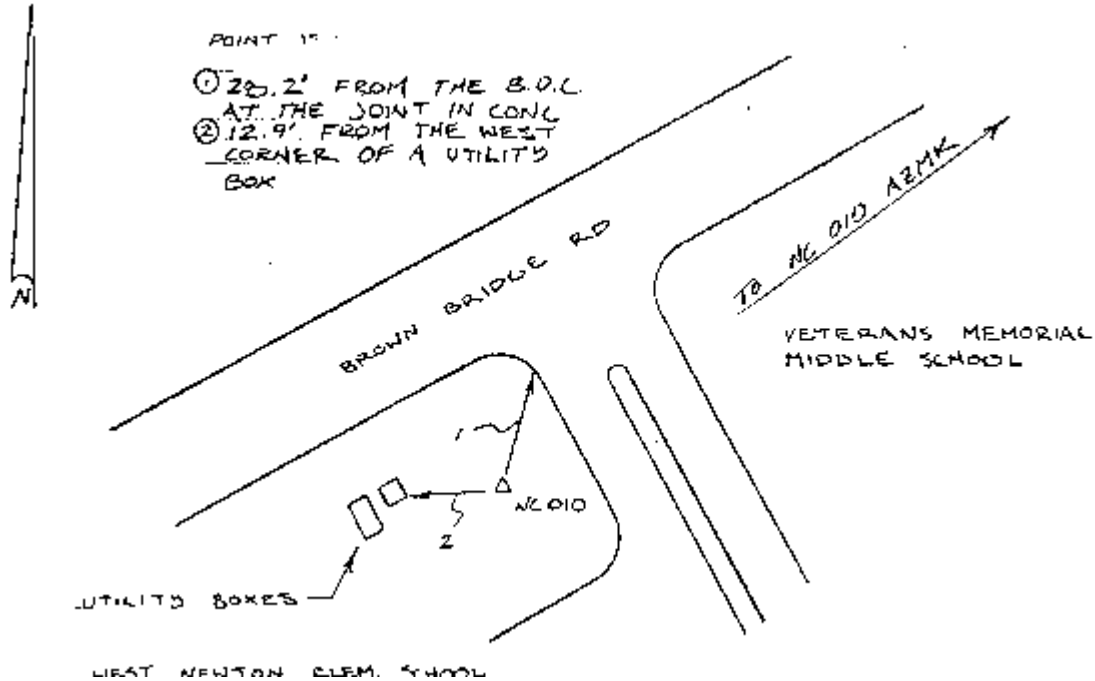 POINT IS
① 28.2' FROM THE B.O.C.
AT THE JOINT IN CONC
② 12.9' FROM THE WEST
CORNER OF A UTILITY
BOX
N
BROWN BRIDGE RD
TO NC 010 AZMK
VETERANS MEMORIAL
MIDDLE SCHOOL
1
NC 010
2
UTILITY BOXES
WEST NEWTON ELEM. SCHOOL